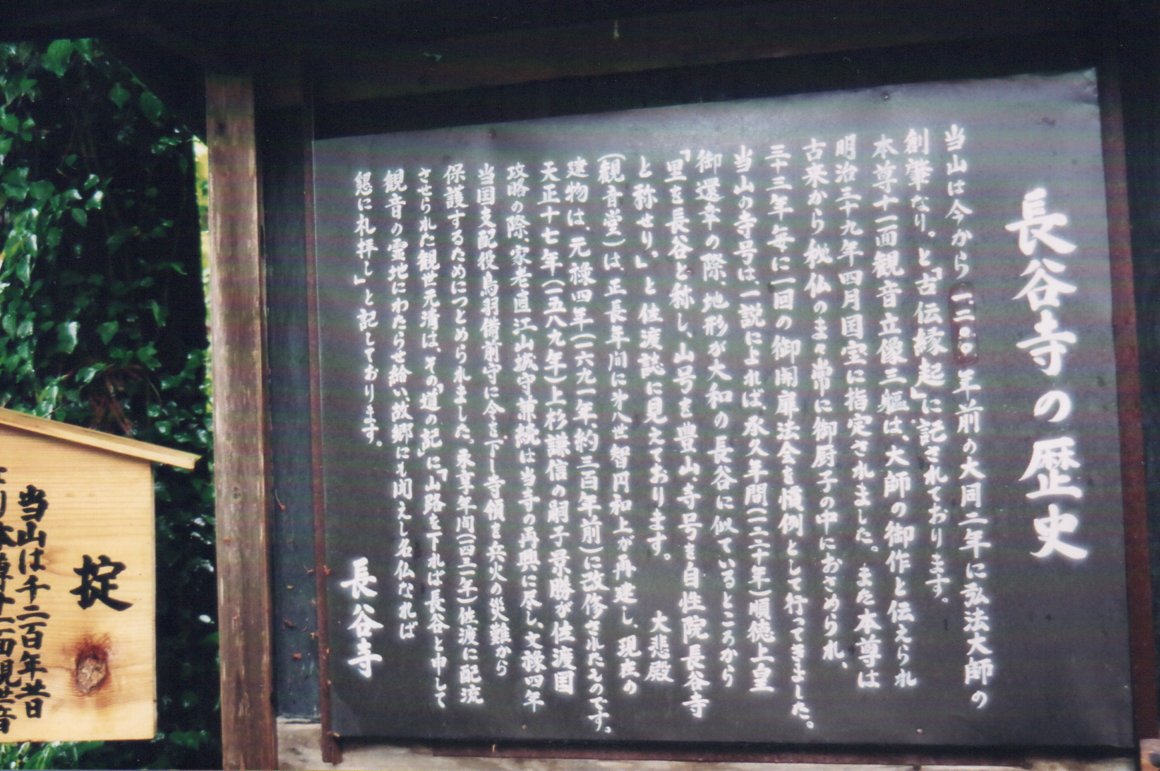 長谷寺の歴史
当山は今から一、二〇〇年前の大同二年に弘法大師の
創肇なり。と『古伝縁起』に記されております。
本尊十一面観音立像三軀は、大師の御作と伝えられ
明治三十九年四月国宝に指定されました。また本尊は
古来から秘仏のまゝ常に御厨子の中におさめられ、
三十三年毎に一回の御開扉法会を慣例として行ってきました。
当山の寺号は一説によれば、永久年間(一二二十年)順徳上皇
御遷幸の際、地形が大和の長谷に似ているところから
『里を長谷と称し、山号を豊山、寺号を自性院長谷寺
と称せり。』と佐渡誌に見えております。 大悲殿
(観音堂)は、正長年间に第八世智円和上が再建し、現在の
建物は、元禄四年(一六九一年、約三百年前)に改修されたものです。
天正十七年(一五八九年)上杉謙信の嗣子景勝が佐渡国
攻略の際、家老直江山城守兼続は当寺の再興に尽し、文禄四年
当国支配役鳥羽備前守に令を下し寺領を兵火の災難から
保護するためにつとめられました。永享年間(四三二年)佐渡に配流
させられた観世元清は、その『道の記』に「山路を下れば長谷と申して
観音の霊地にわたらせ給い、故郷にも聞えし名仏なれば
懇に礼拝し」と記しております。
長谷寺
掟
当山は千二百年昔日
より本尊十一面観世音